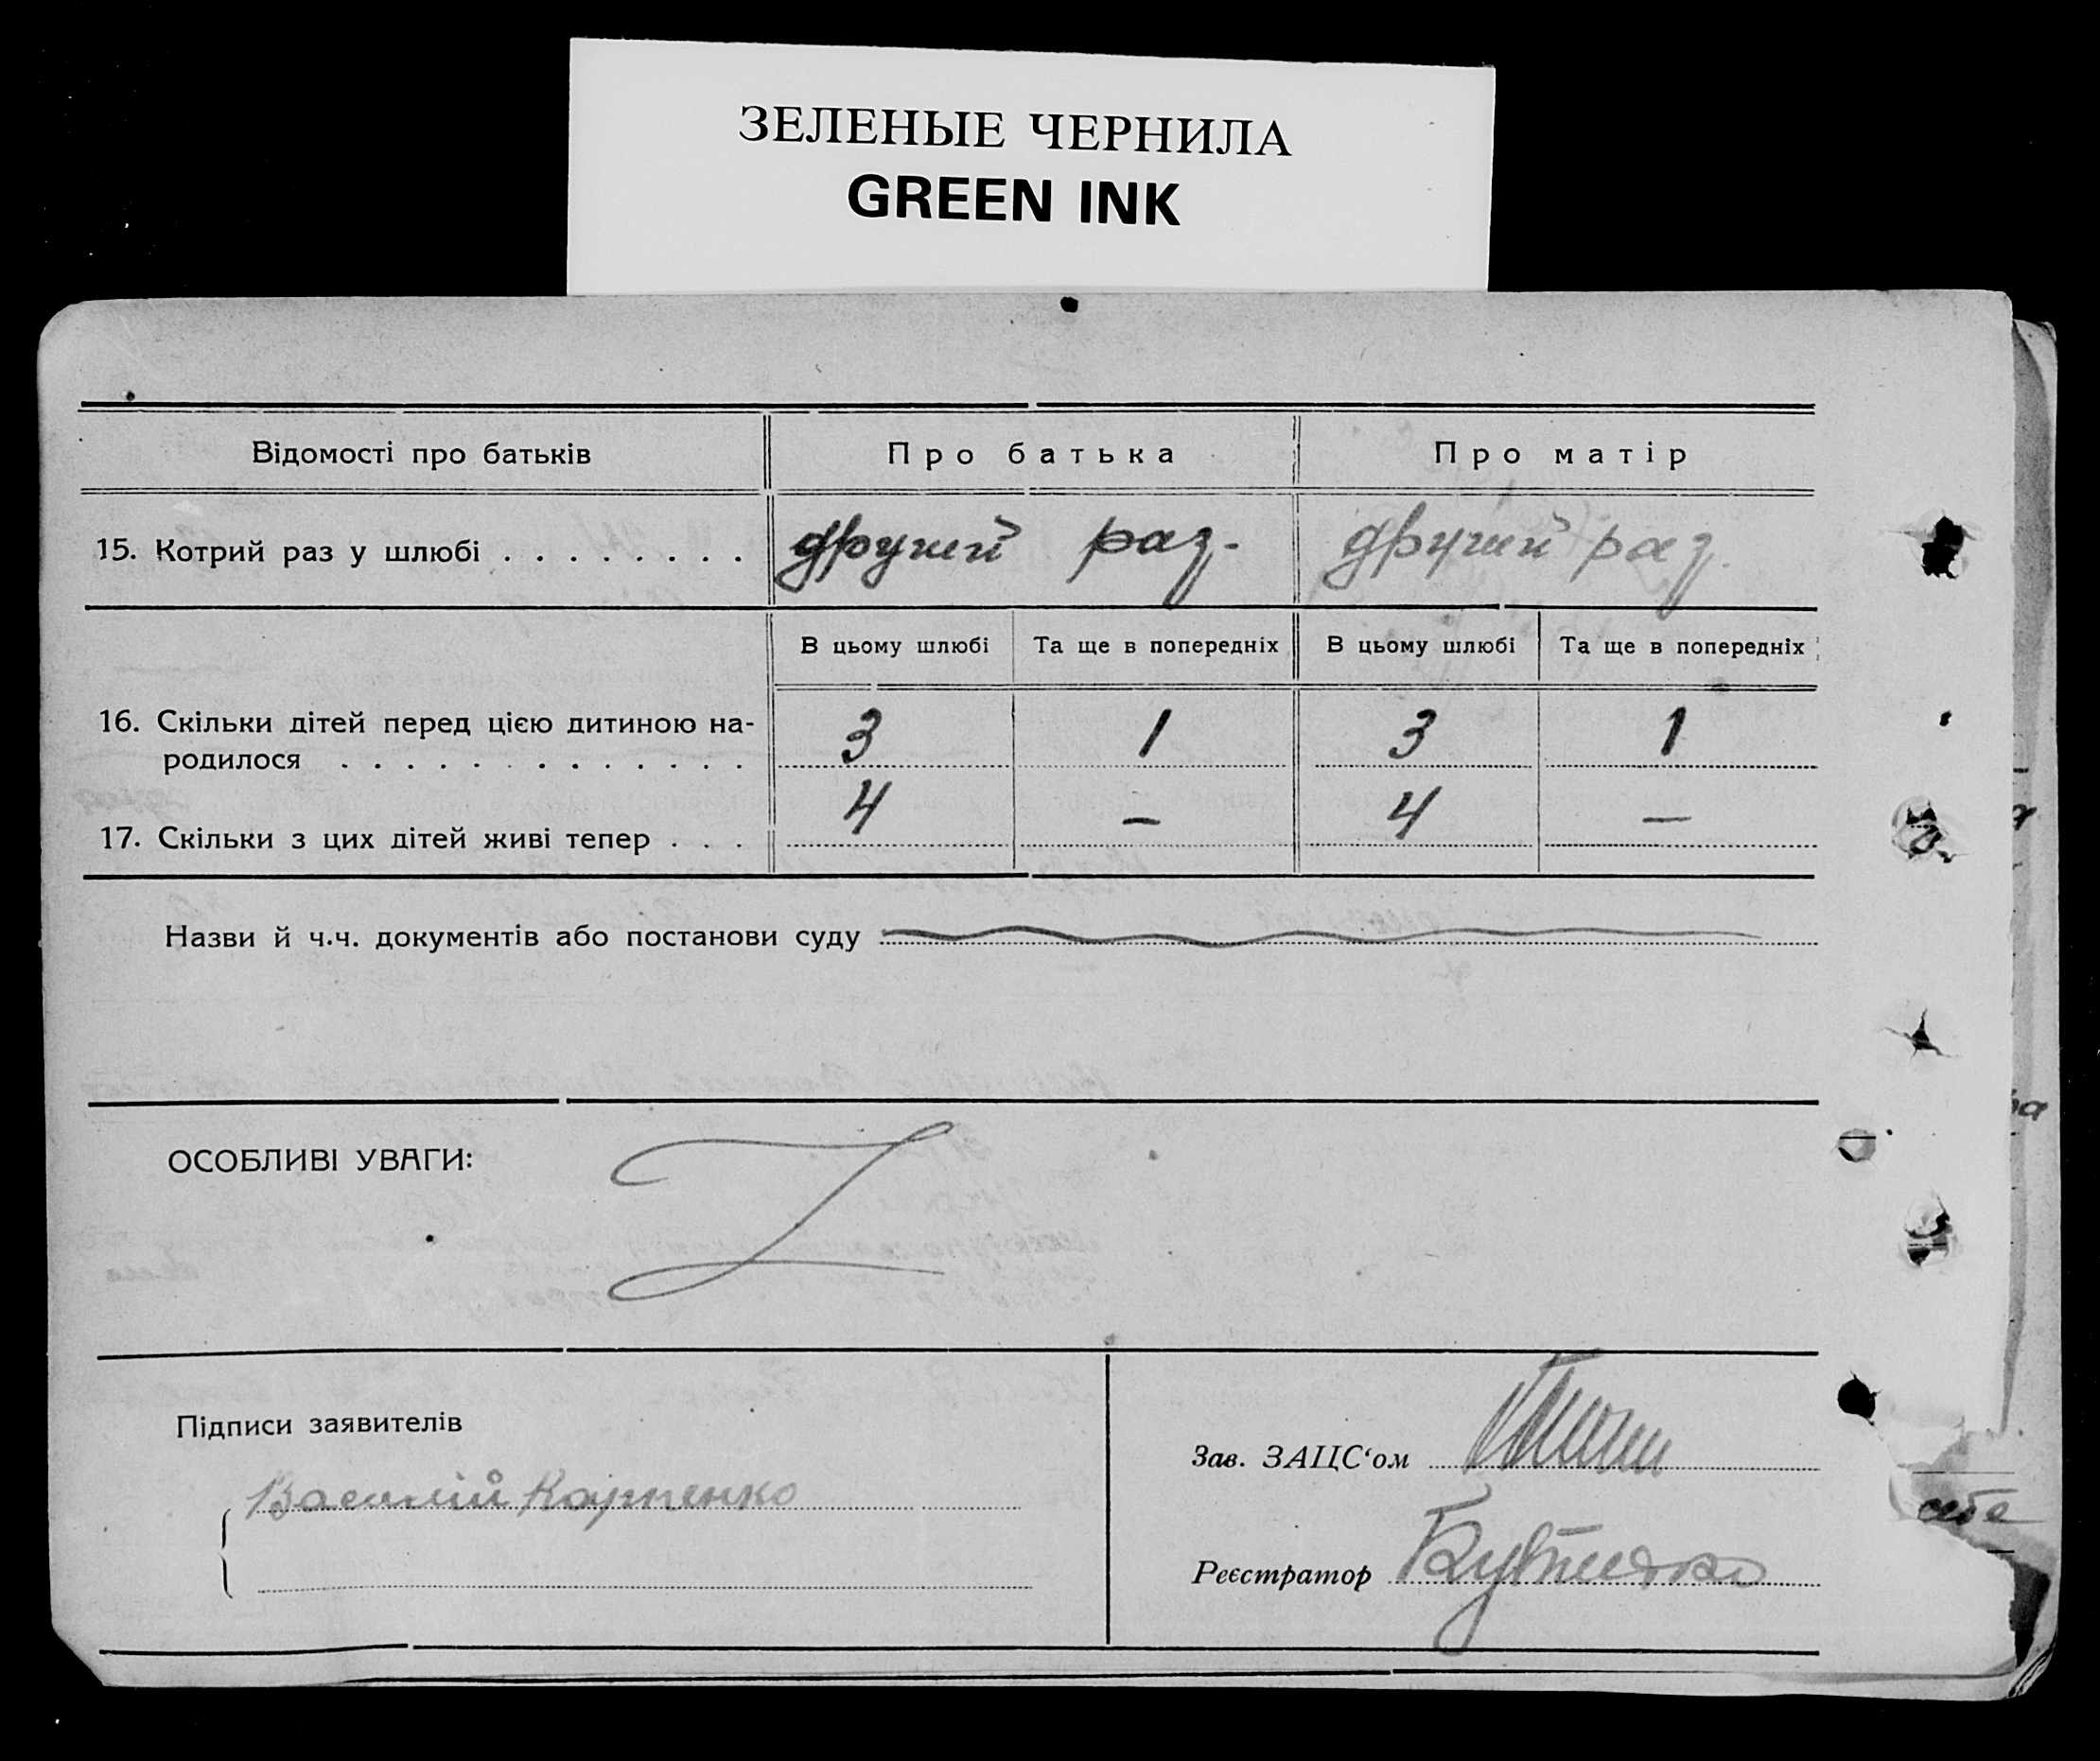 ЗЕЛЕНЫЕ ЧЕРНИЛА
GREEN INK
Відомості про батьків Про батька Про матір
15. Котрий раз у шлюбі . . . . . . . . другий раз. другий раз.
В цьому шлюбі Та ще в попередніх В цьому шлюбі Та ще в попередніх
16. Скільки дітей перед цією дитиною на-
родилося . . . . . . . . . . . . . 3 1 3 1
17. Скільки з цих дітей живі тепер . . . 4 — 4 —
Назви й ч.ч. документів або постанови суду
ОСОБЛИВІ УВАГИ:
Підписи заявителів
Зав. ЗАЦС‘ом
Василій Карпенко
себе
Реєстратор